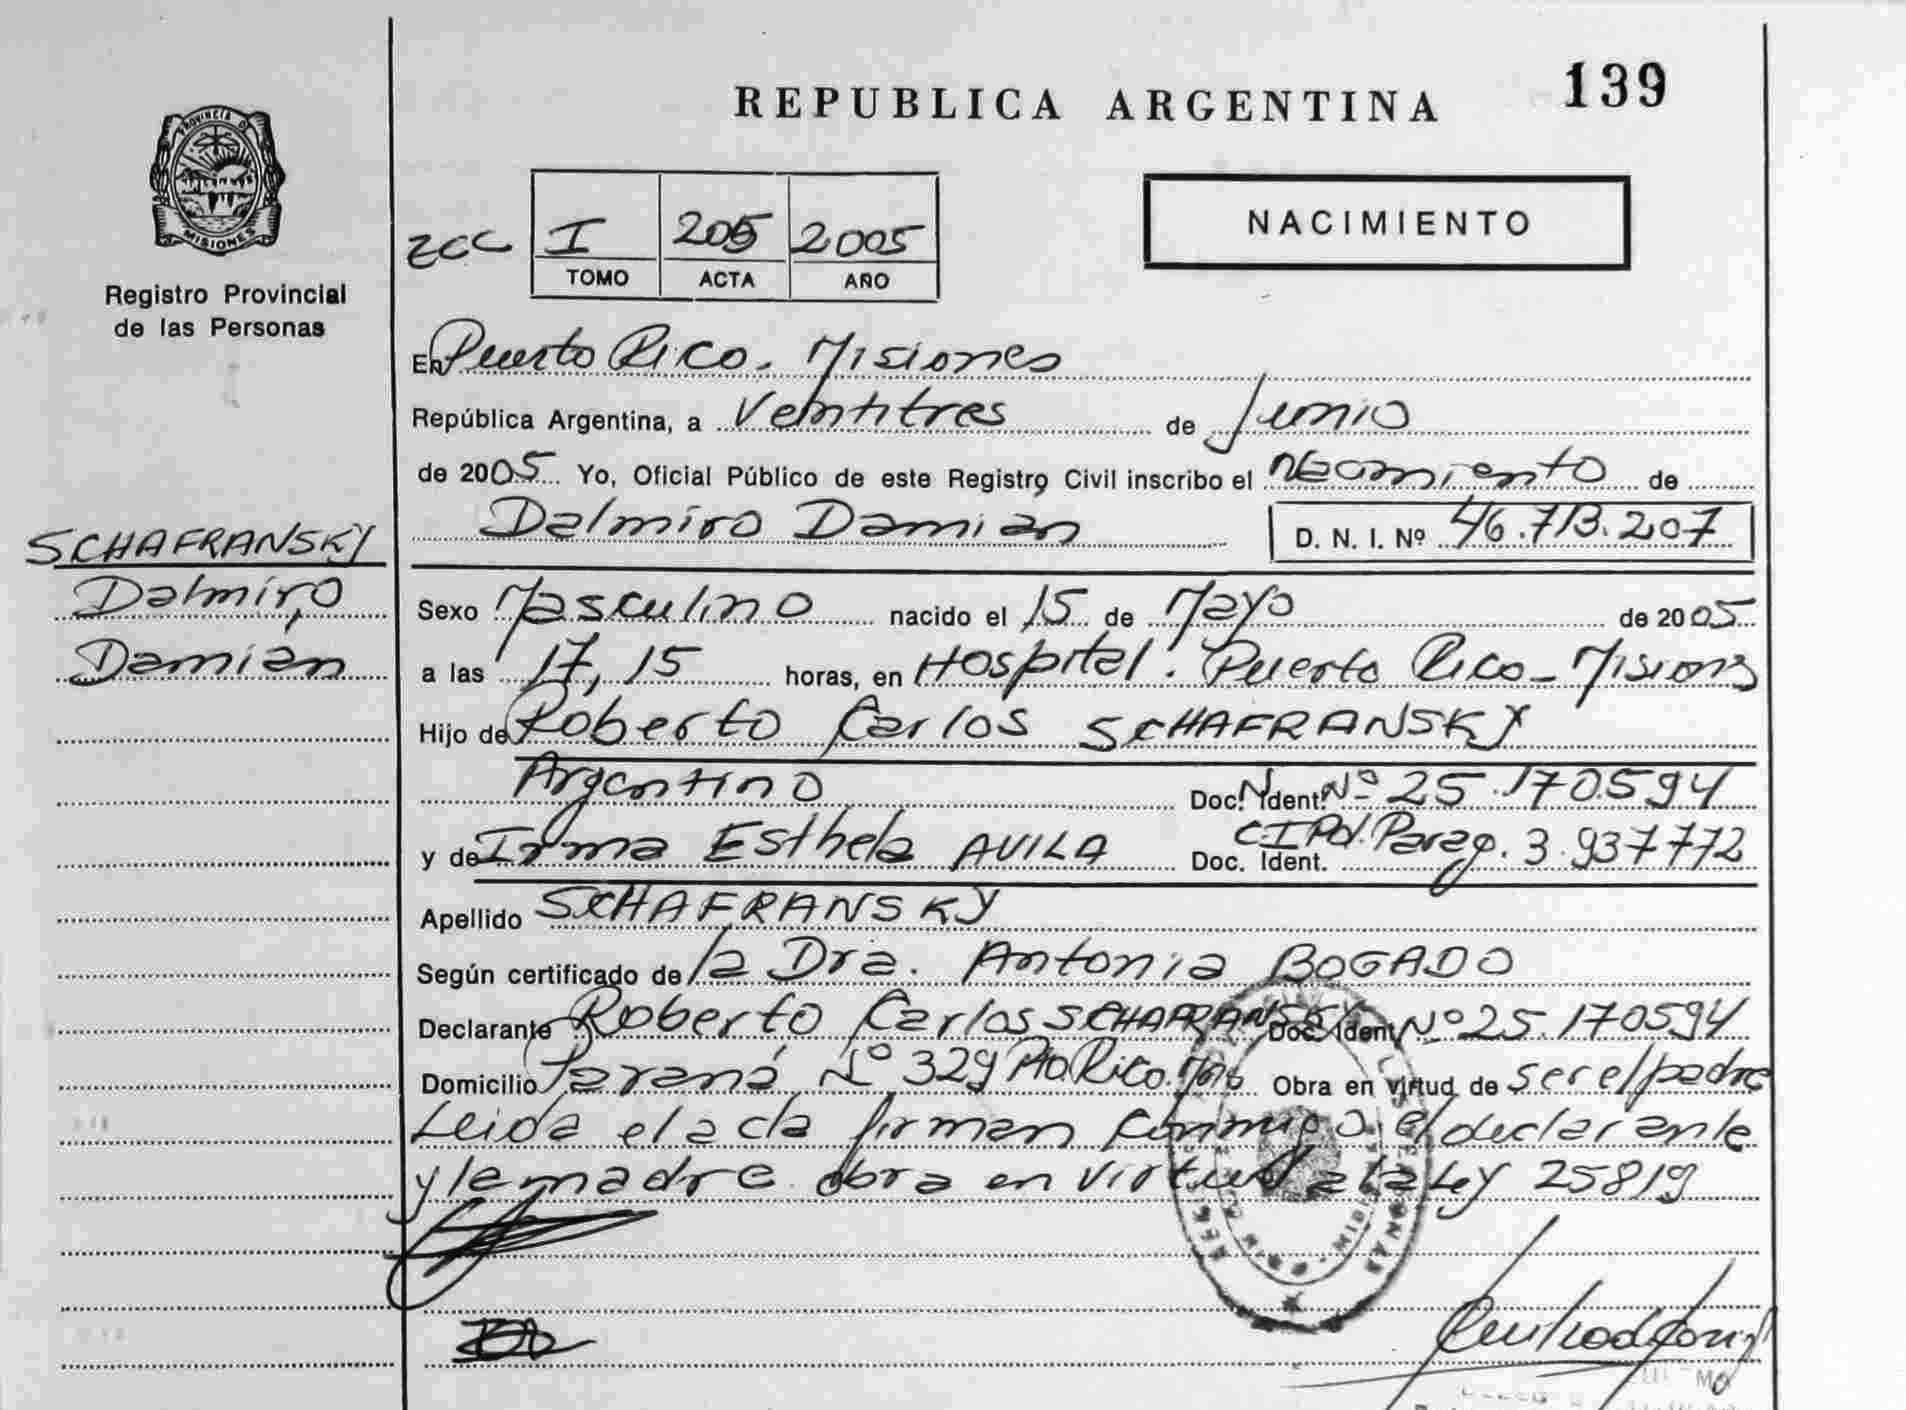 REPUBLICA ARGENTINA 139
PROVINCIA DE MISIONES
Registro Provincial
de las Personas
ZCC I 205 2005
TOMO ACTA AÑO
NACIMIENTO
En Puerto Rico. Misiones
República Argentina, a Veintitres de Junio
de 2005 Yo, Oficial Público de este Registro Civil inscribo el nacimiento de
Dalmiro Damián D. N. I. Nº 46.713.207
SCHAFRANSKY
Dalmiro
Damián
Sexo Masculino nacido el 15 de Mayo de 2005
a las 17,15 horas, en Hospital. Puerto Rico - Misiones
Hijo de Roberto Carlos SCHAFRANSKY
Argentino Doc. Ident. Nº 25.170.594
y de Irma Esthela AVILA Doc. Ident. CI Pol. Parag. 3.937772
Apellido SCHAFRANSKY
Según certificado de la Dra. Antonia BOGADO
Declarante Roberto Carlos SCHAFRANSKY Doc. Ident. Nº 25.170594
Domicilio Paraná Nº 329 Pto Rico. Mnes Obra en virtud de ser el padre
Leida el acta firman conmigo el declarante
y la madre obra en virtud a la Ley 25819